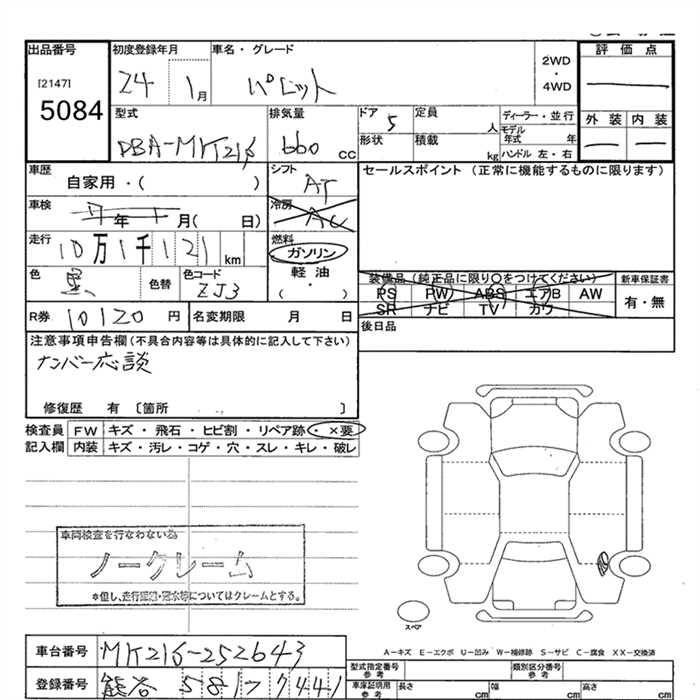 出品番号
[2147]
5084
初度登録年月
24 1月
車名・グレード
パレット
2WD
・
4WD
評価点
外装 内装
型式
DBA-MK21S
排気量
660 cc
ドア 5
形状
定員 人
積載 kg
ディーラー・並行
モデル年式 年
ハンドル 左・右
車歴
自家用・( )
シフト
AT
セールスポイント (正常に機能するものに限ります)
車検
年 月( 日)
冷房
AC
走行
10万1千121km
燃料
ガソリン
軽油
( ・ )
色
黒
色替
色コード
ZJ3
装備品 (純正品に限り○をつけてください)
PS PW ABS エアB AW
SR ナビ TV カワ
新車保証書
有・無
R券 10120 円
名変期限 月 日
後日品
注意事項申告欄(不具合内容等は具体的に記入して下さい)
ナンバー応談
修復歴 有 〔箇所 〕
検査員
記入欄
FW キズ・飛石・ヒビ割・リペア跡・×要
内装 キズ・汚レ・コゲ・穴・スレ・キレ・破レ
車両検査を行なわない為
ノークレーム
*但し、走行距離・冠水等についてはクレームとする。
スペア
A-キズ E-エクボ U-凹み W-補修跡 S-サビ C-腐食 XX-交換済
車台番号 MK21S-252643
登録番号 熊谷 581 7441
型式指定番号
参考
類別区分番号
参考
車庫証明用
参考
長さ cm
幅 cm
高さ cm